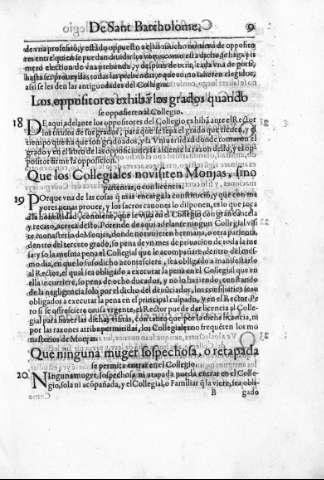 De Sant Bartholome, 9
de vna profesió, y estádo oppuesto
entre quien se puedan diuidir los votos, como esta dicho, se haga, y
mero election de vna prebenda, y despues de otra, cada vna de por si,
hasta ser proueydas todas las prebendas,
assi se les den las antiguedades del Collegio.
Los oppositores exhibã los grados quando
se oppusieren al Collegio.
18 DE aqui adelante los oppositores del Collegio exhibã ante el Rector
los titulos de sus grados, para que se sepa el grado que tiene, y
tiempo que ha que son graduados, y la Vniuersidad donde tomaron el
grado, y en el libro de las oppositiones se assiente la razon dello,
positor firme la opposicion.
Que los Collegiales no visiten Monjas, sino
parientas, o con licencia.
19 POrque vna de las cosas q̃ mas encargada
yores penas prouee, y los sacros canones lo disponen, es lo que toca
a la conuiene, que se viua en el Collegio con gran cautela
y recato, acerca desto. Por ende de aqui adelante ningun Collegial visi
te monasterio de Monjas, donde no tuuieren hermana, o otra parienta,
dentro del tercero grado, so pena de vn mes de priuacion de toda la
y so la mesma pena el Collegial que le acompañare, dentro del mes-
mo dia, en que lo susodicho aconteciere, sea obligado a manifestarlo
al Rector, el qual sea obligado a executar la pena en el Collegial que en
ella incurriere, so pena de ocho ducados, y no lo haziendo, constando
de la negligencia solo por el dicho del denunciador, los consiliarios sean
obligados a executar la pena en el principal culpado, y en el Rector. Pe
ro si se offresciere causa vrgente, el Rector puede dar licencia al Colle-
gial para hazer las dichas visitas, con tanto que por la dicha licencia, ni
por las razones arriba permitidas, los Collegiales no frequéten los mo
nasterios de Monjas.
Que ninguna muger sospechosa, o retapada
se permita entrar en el Collegio.
20 NInguna muger, sospechosa ni atapada pueda entrar en el Colle-
gio, sola ni acõpañada, y el Collegial, o Familiar q̃ la viere, sea obli-
B gado